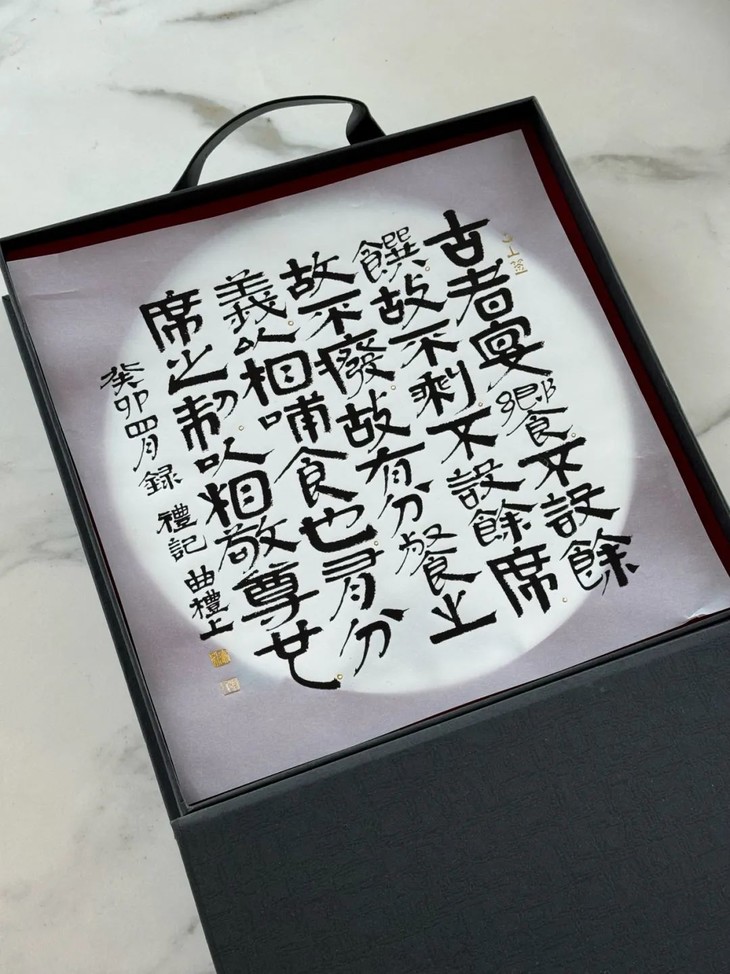 古者宴饗不設餘
饌故不剩不設餘席
故不廢故有分餐之
義以相哺食也有分
席之制以相敬尊也
癸卯四月錄 禮記 曲禮上